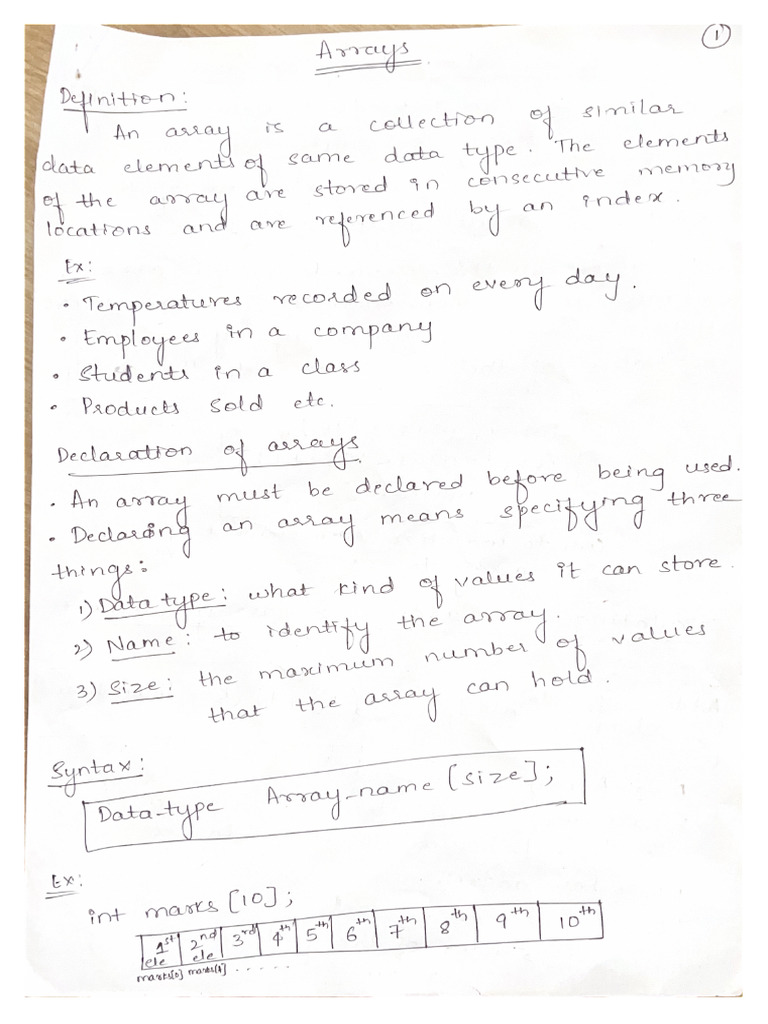 1
Arrays
Definition:
An array is a collection of similar
data elements of same data type. The elements
of the array are stored in consecutive memory
locations and are referenced by an index.
Ex:
• Temperatures recorded on every day.
• Employees in a company
• Students in a class
• Products sold etc.
Declaration of arrays
• An array must be declared before being used.
• Declaring an array means specifying three
things:
1) Data type: what kind of values it can store.
2) Name: to identify the array.
3) Size: the maximum number of values
that the array can hold.
Syntax:
Data-type Array-name [size];
Ex:
int marks [10];
1st ele 2nd ele 3rd 4th 5th 6th 7th 8th 9th 10th
marks[0] marks[1] . . . . .